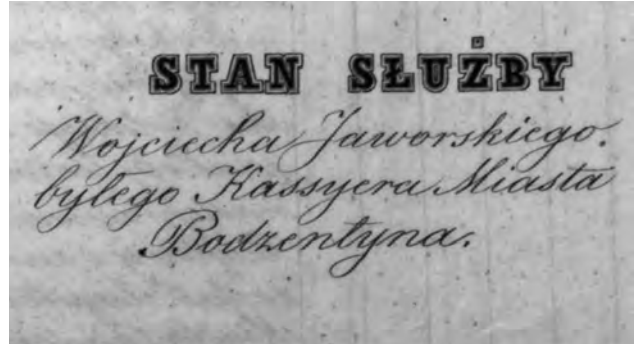 STAN SŁUŻBY
Wojciecha Jaworskiego.
byłego Kassyera Miasta
Bodzentyna.